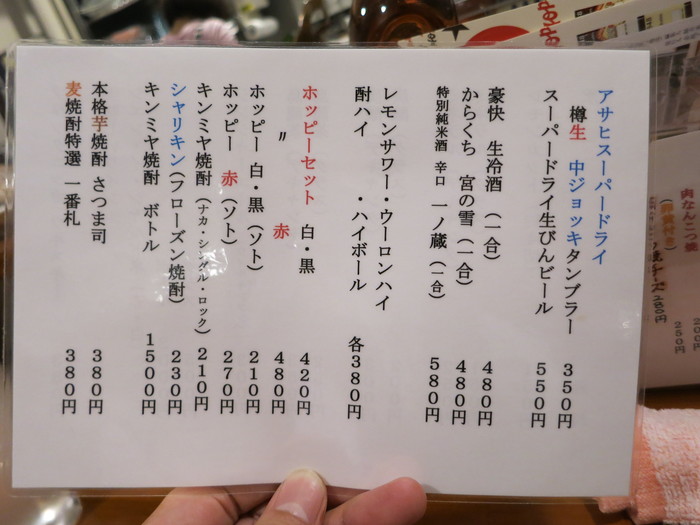 アサヒスーパードライ
樽生 中ジョッキタンブラー 350円
スーパードライ生びんビール 550円
豪快 生冷酒 (一合) 480円
からくち 宮の雪 (一合) 480円
特別純米酒 辛口 一ノ蔵 (一合) 580円
レモンサワー・ウーロンハイ
酎ハイ ・ハイボール 各380円
ホッピーセット 白・黒 420円
〃 赤 480円
ホッピー 白・黒(ソト) 210円
ホッピー 赤(ソト) 270円
キンミヤ焼酎(ナカ・シングル・ロック) 210円
シャリキン(フローズン焼酎) 230円
キンミヤ焼酎 ボトル 1500円
本格芋焼酎 さつま司 380円
麦焼酎特選 一番札 380円
肉なんこつ
250円